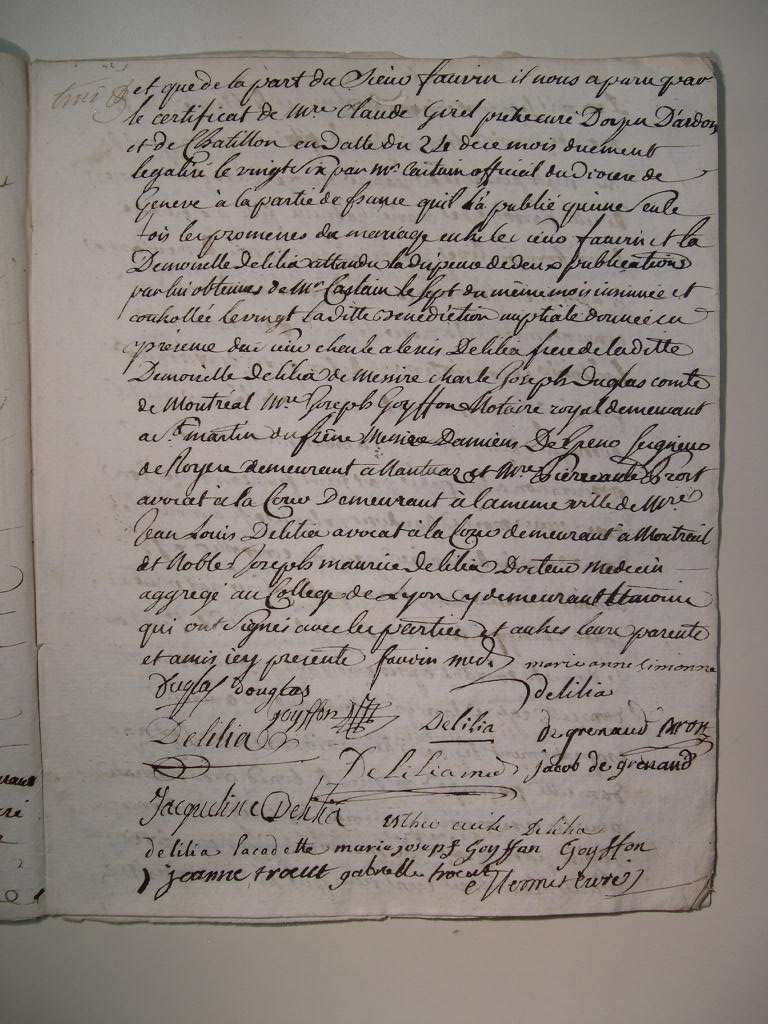 et que de la part du Sieur fauvin il nous a paru par
le certificat de Mre Claude Girel pretre curé Doyen D'ardon
et de Chatillon en datte du 24 de ce mois duement
legalisé le vingt six par Mr Castain official du diocese de
Geneve à la partie de france quil a publié qu'une seule
fois les promesses du mariage entre le sieur fauvin et la
Demoiselle Delilia attandu la dispence de deux publications
par lui obtenues de Mr Castain le sept du même mois insinuée et
controllée le vingt la ditte Benediction nuptiale donnée en
présence du sieur charle alexis Delilia frere de la ditte
Demoiselle Delilia de Messire charle Joseph Duglas comte
de Montreal Mre Joseph Goyffon Notaire royal demeurant
a St martin du frêne Messire Damiens De Seigneur
de Royere demeurant a Nantua et Mre Pierre
avocat à la Cour Demeurant à la meme ville de Mre
Jean Louis Delilia avocat à la Cour demeurant a Montreal
et Noble Joseph maurice delilia Docteur medecin
aggregé au College de Lyon y demeurant temoins
qui ont signés avec les parties et autres leurs parents
et amis icy presents fauvin med. marie anne simonne
Duglas douglas delilia
goyffon
Delilia Delilia de grenaud
Delilia med jacob de grenaud
Jacqueline Delilia Delilia
delilia lacodette marie joseph Goyffon Goyffon
jeanne gabrielle curé